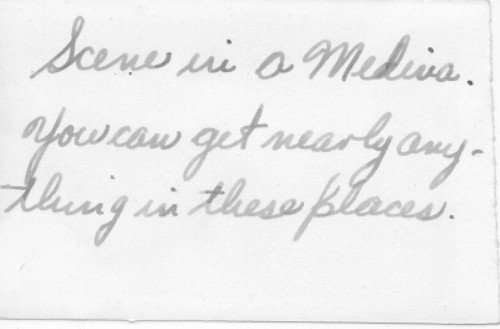 Scene in a Mediva.
You can get nearly any-
thing in these places.